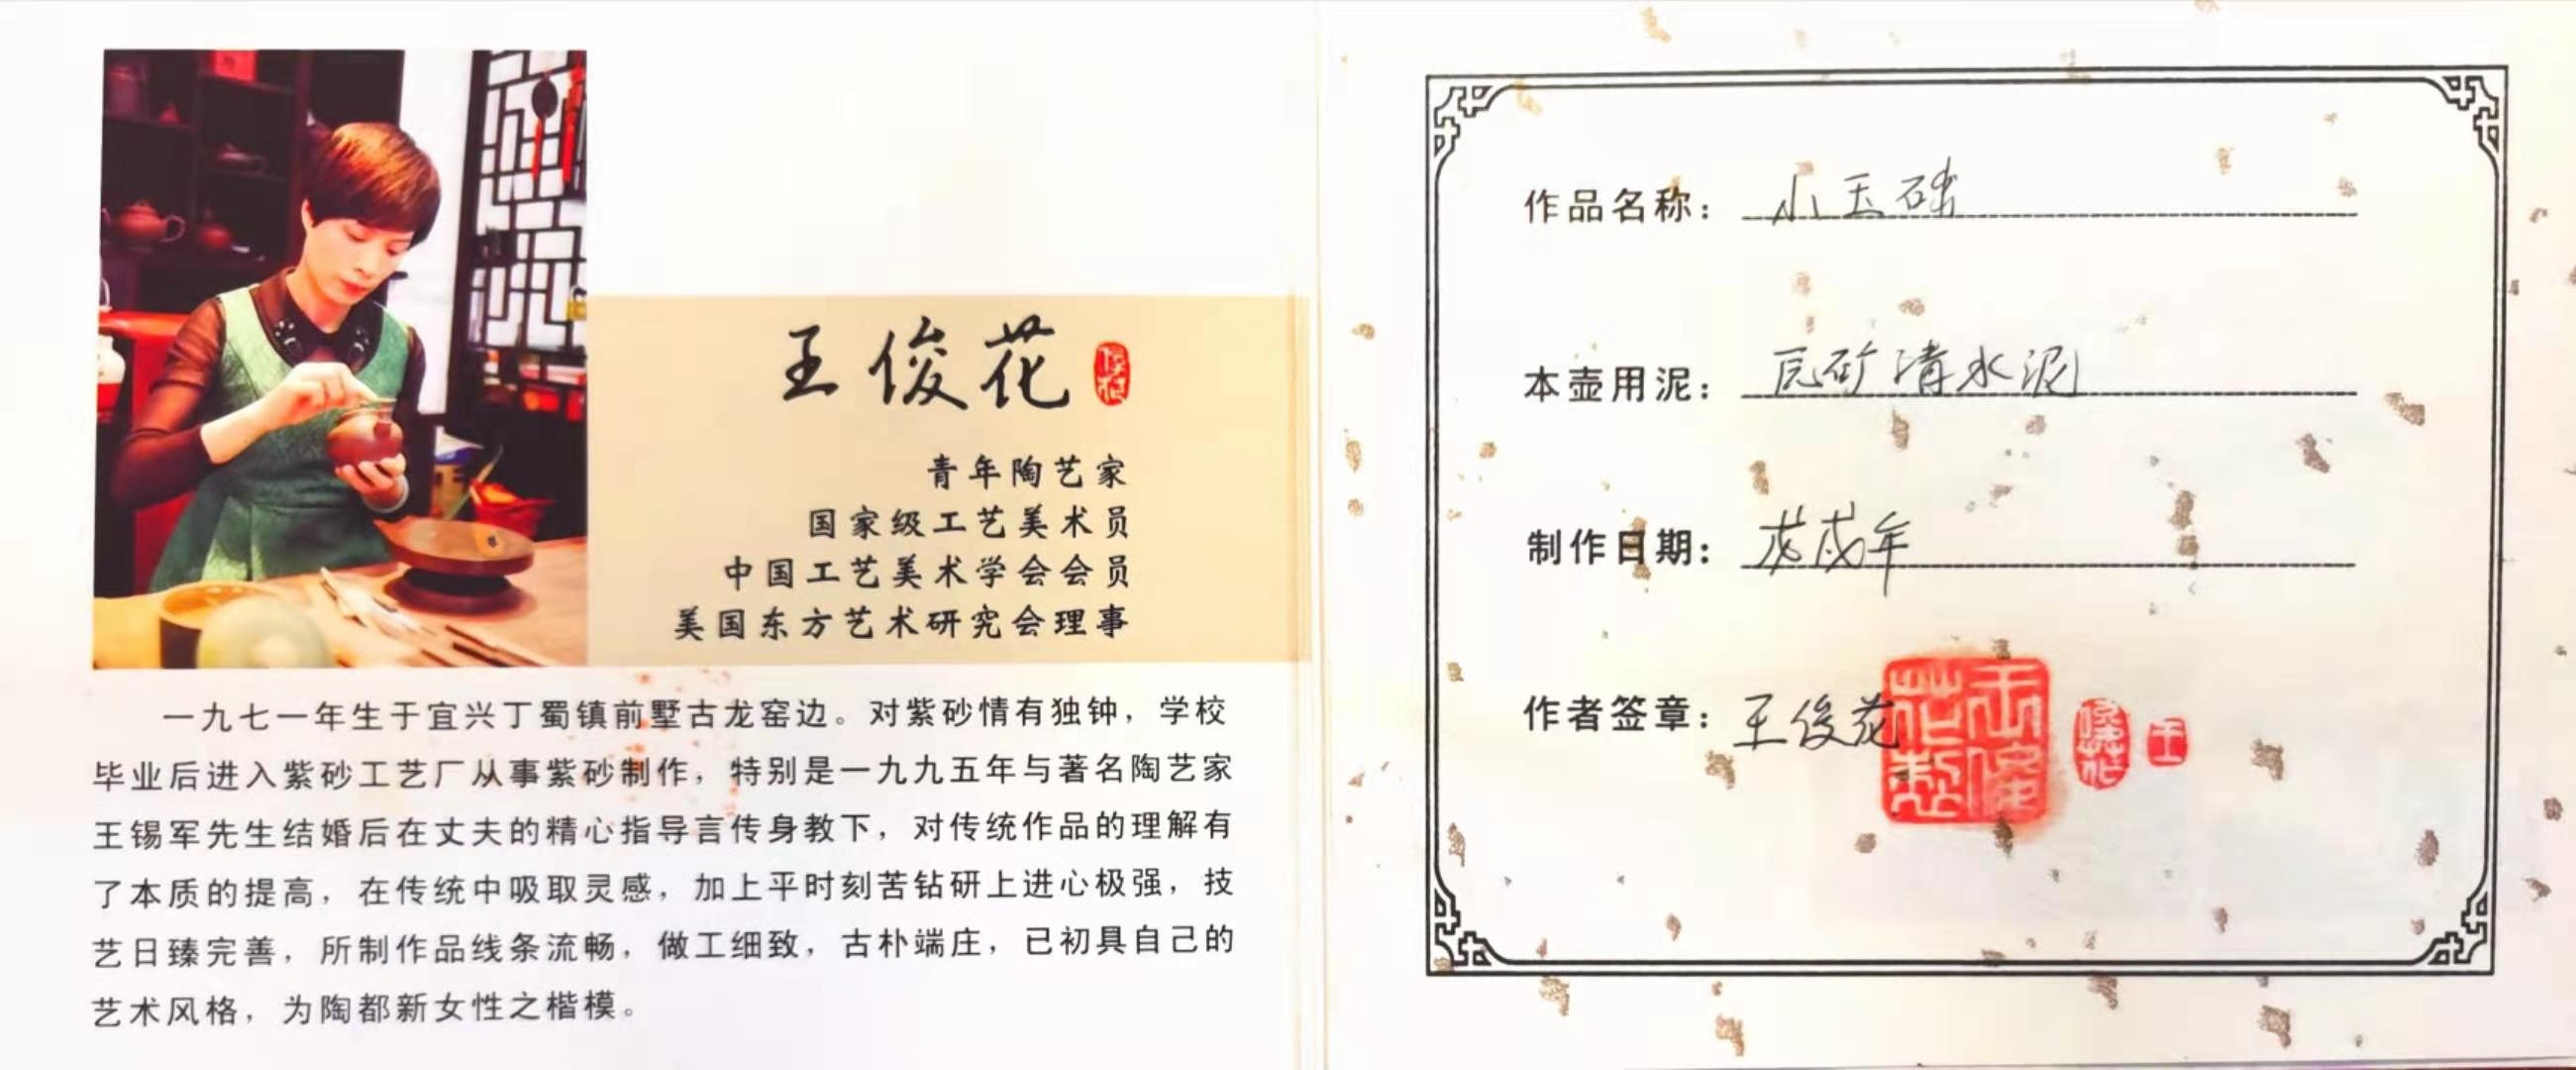 王俊花
青年陶艺家
国家级工艺美术员
中国工艺美术学会会员
美国东方艺术研究会理事
一九七一年生于宜兴丁蜀镇前墅古龙窑边。对紫砂情有独钟，学校
毕业后进入紫砂工艺厂从事紫砂制作，特别是一九九五年与著名陶艺家
王锡军先生结婚后在丈夫的精心指导言传身教下，对传统作品的理解有
了本质的提高，在传统中吸取灵感，加上平时刻苦钻研上进心极强，技
艺日臻完善，所制作品线条流畅，做工细致，古朴端庄，已初具自己的
艺术风格，为陶都新女性之楷模。
作品名称：小玉
本壶用泥：原矿清水泥
制作日期：戊戌年
作者签章：王俊花
王俊花制
俊花
王